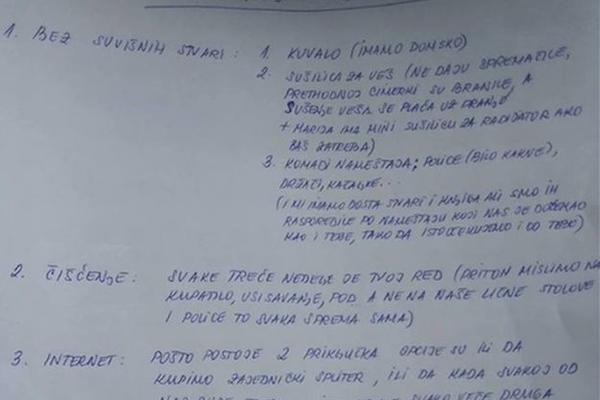 1. BEZ SUVIŠNIH STVARI: 1. KUVALO (IMAMO DOMSKO)
2. SUŠILICA ZA VEŠ (NE DAJU SPREMAČICE,
PRETHODNOJ CIMERKI SU BRANILE, A
SUŠENJE VEŠA SE PLAĆA UZ PRANJE
+ MARIJA IMA MINI SUŠILICU ZA RADIJATOR AKO
BAŠ ZATREBA)
3. KOMADI NAMEŠTAJA; POLICE (BILO KAKVE),
DRŽAČI, KAZALJKE...
(I MI IMAMO DOSTA STVARI I KNJIGA ALI SMO IH
RASPOREDILE PO NAMEŠTAJU KOJI NAS JE DOČEKAO
KAO I TEBE, TAKO DA ISTO OČEKUJEMO I OD TEBE)
2. ČIŠĆENJE: SVAKE TREĆE NEDELJE JE TVOJ RED (PRITOM MISLIMO NA
KUPATILO, USISAVANJE, POD, A NE NA NAŠE LIČNE STOLOVE
I POLICE TO SVAKA SPREMA SAMA)
3. INTERNET: POŠTO POSTOJE 2 PRIKLJUČKA OPCIJE SU ILI DA
KUPIMO ZAJEDNIČKI SPLITER, ILI DA KADA SVAKOJ OD
SVAKO VEČE DRUGA